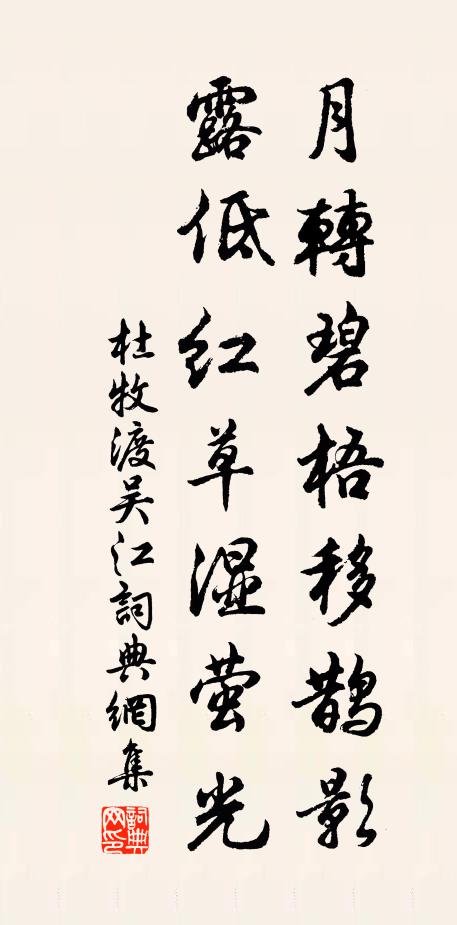 月轉碧梧移鹊影
露低红草湿萤光
杜牧渡吴江詞典網集
詞典网印